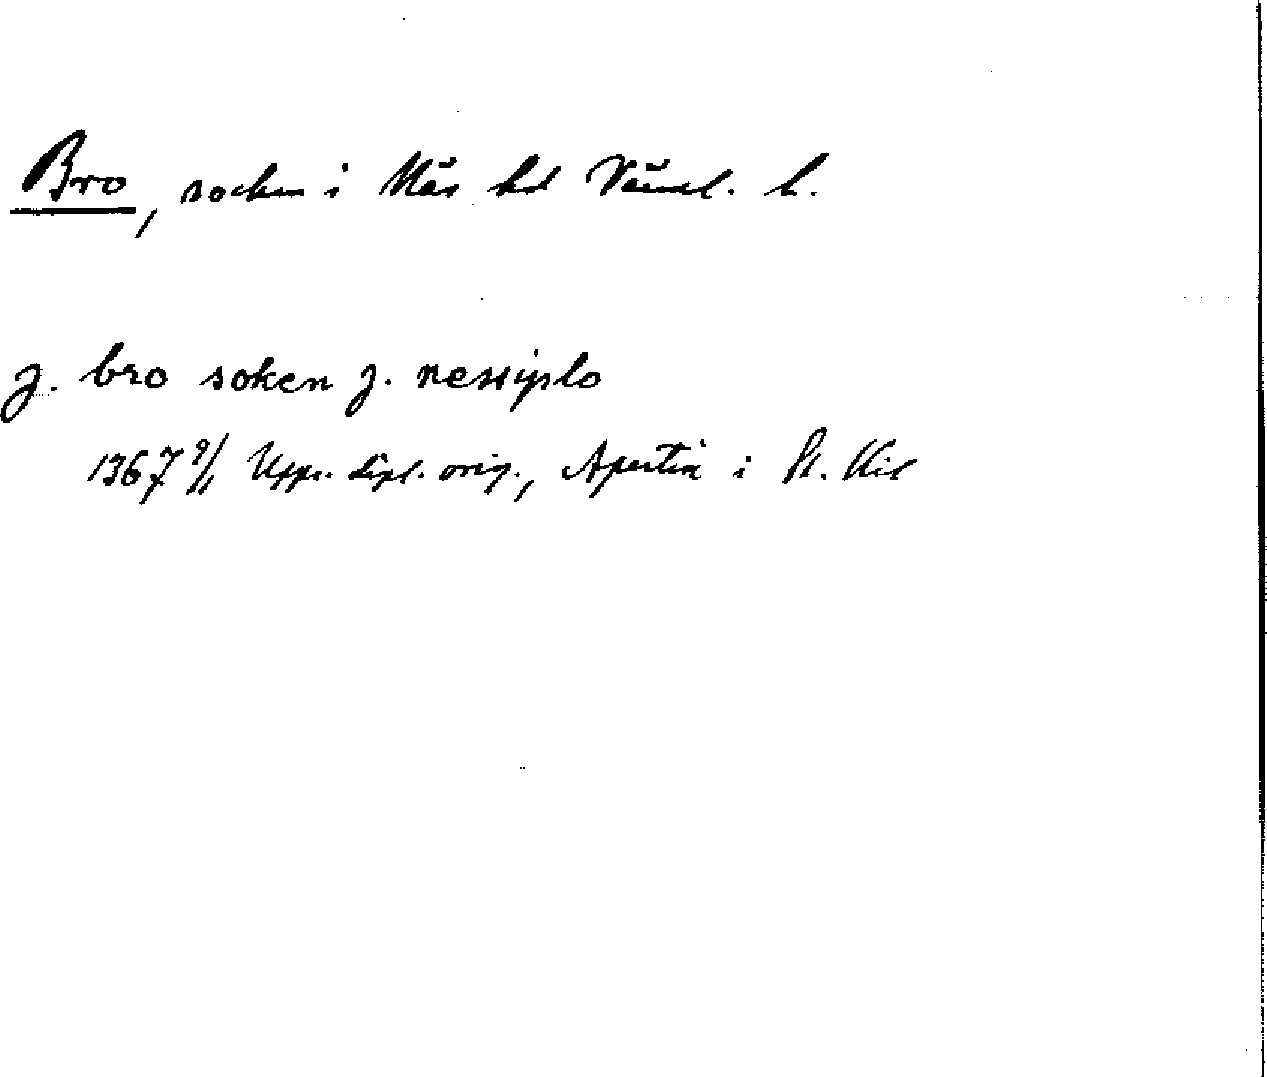 Bro, socken i Näs hd Värml. l.
j. bro soken j. nessiplo
1367 9/11 Upps. dipl. orig., Apertin i St. Kil